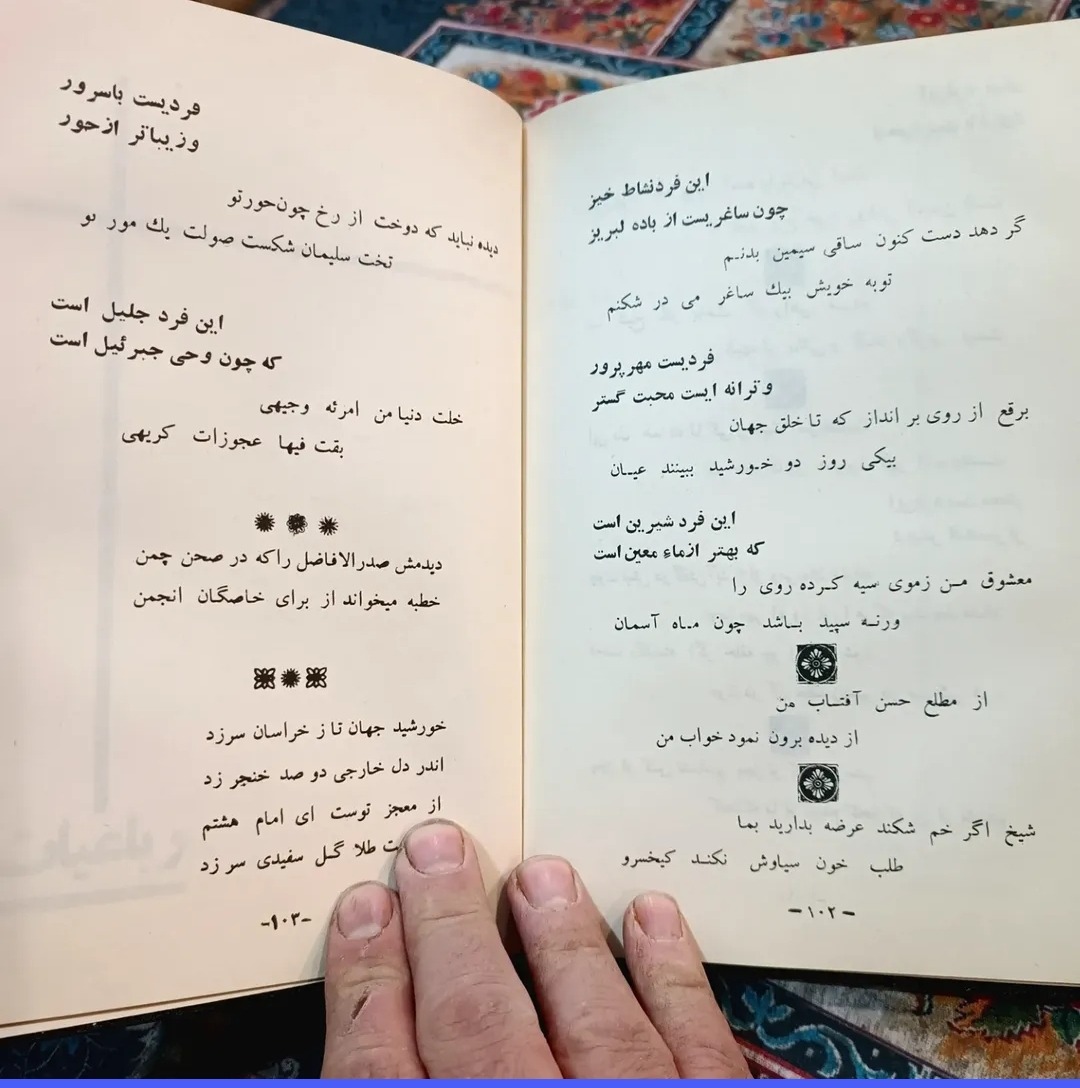 این فرد نشاط خیز
چون ساغریست از باده لبریز
گر دهد دست کنون ساقی سیمین بدنم
توبه خویش بیك ساغر می در شکنم
فردیست مهر پرور
و ترانه ایست محبت گستر
برقع از روی بر انداز که تا خلق جهان
بیکی روز دو خورشید ببینند عیان
این فرد شیرین است
که بهتر ازماء معین است
معشوق من زموی سیه کرده روی را
ورنه سپید باشد چون ماه آسمان
از مطلع حسن آفتاب من
از دیده برون نمود خواب من
شیخ اگر خم شکند عرضه بدارید بما
طلب خون سیاوش نکند کیخسرو
-۱۰۲-
فردیست باسرور
و زیباتر ازحور
دیده نباید که دوخت از رخ چون‌حورتو
تخت سلیمان شکست صولت یك مور تو
این فرد جلیل است
که چون وحی جبرئیل است
خلت دنیا من امرئه وجیهی
بقت فیها عجوزات کریهی
دیدمش صدرالافاضل راکه در صحن چمن
خطبه میخواند از برای خاصگان انجمن
خورشید جهان تا ز خراسان سرزد
اندر دل خارجی دو صد خنجر زد
از معجز توست ای امام هشتم
طلا گل سفیدی سر زد
-۱۰۳-